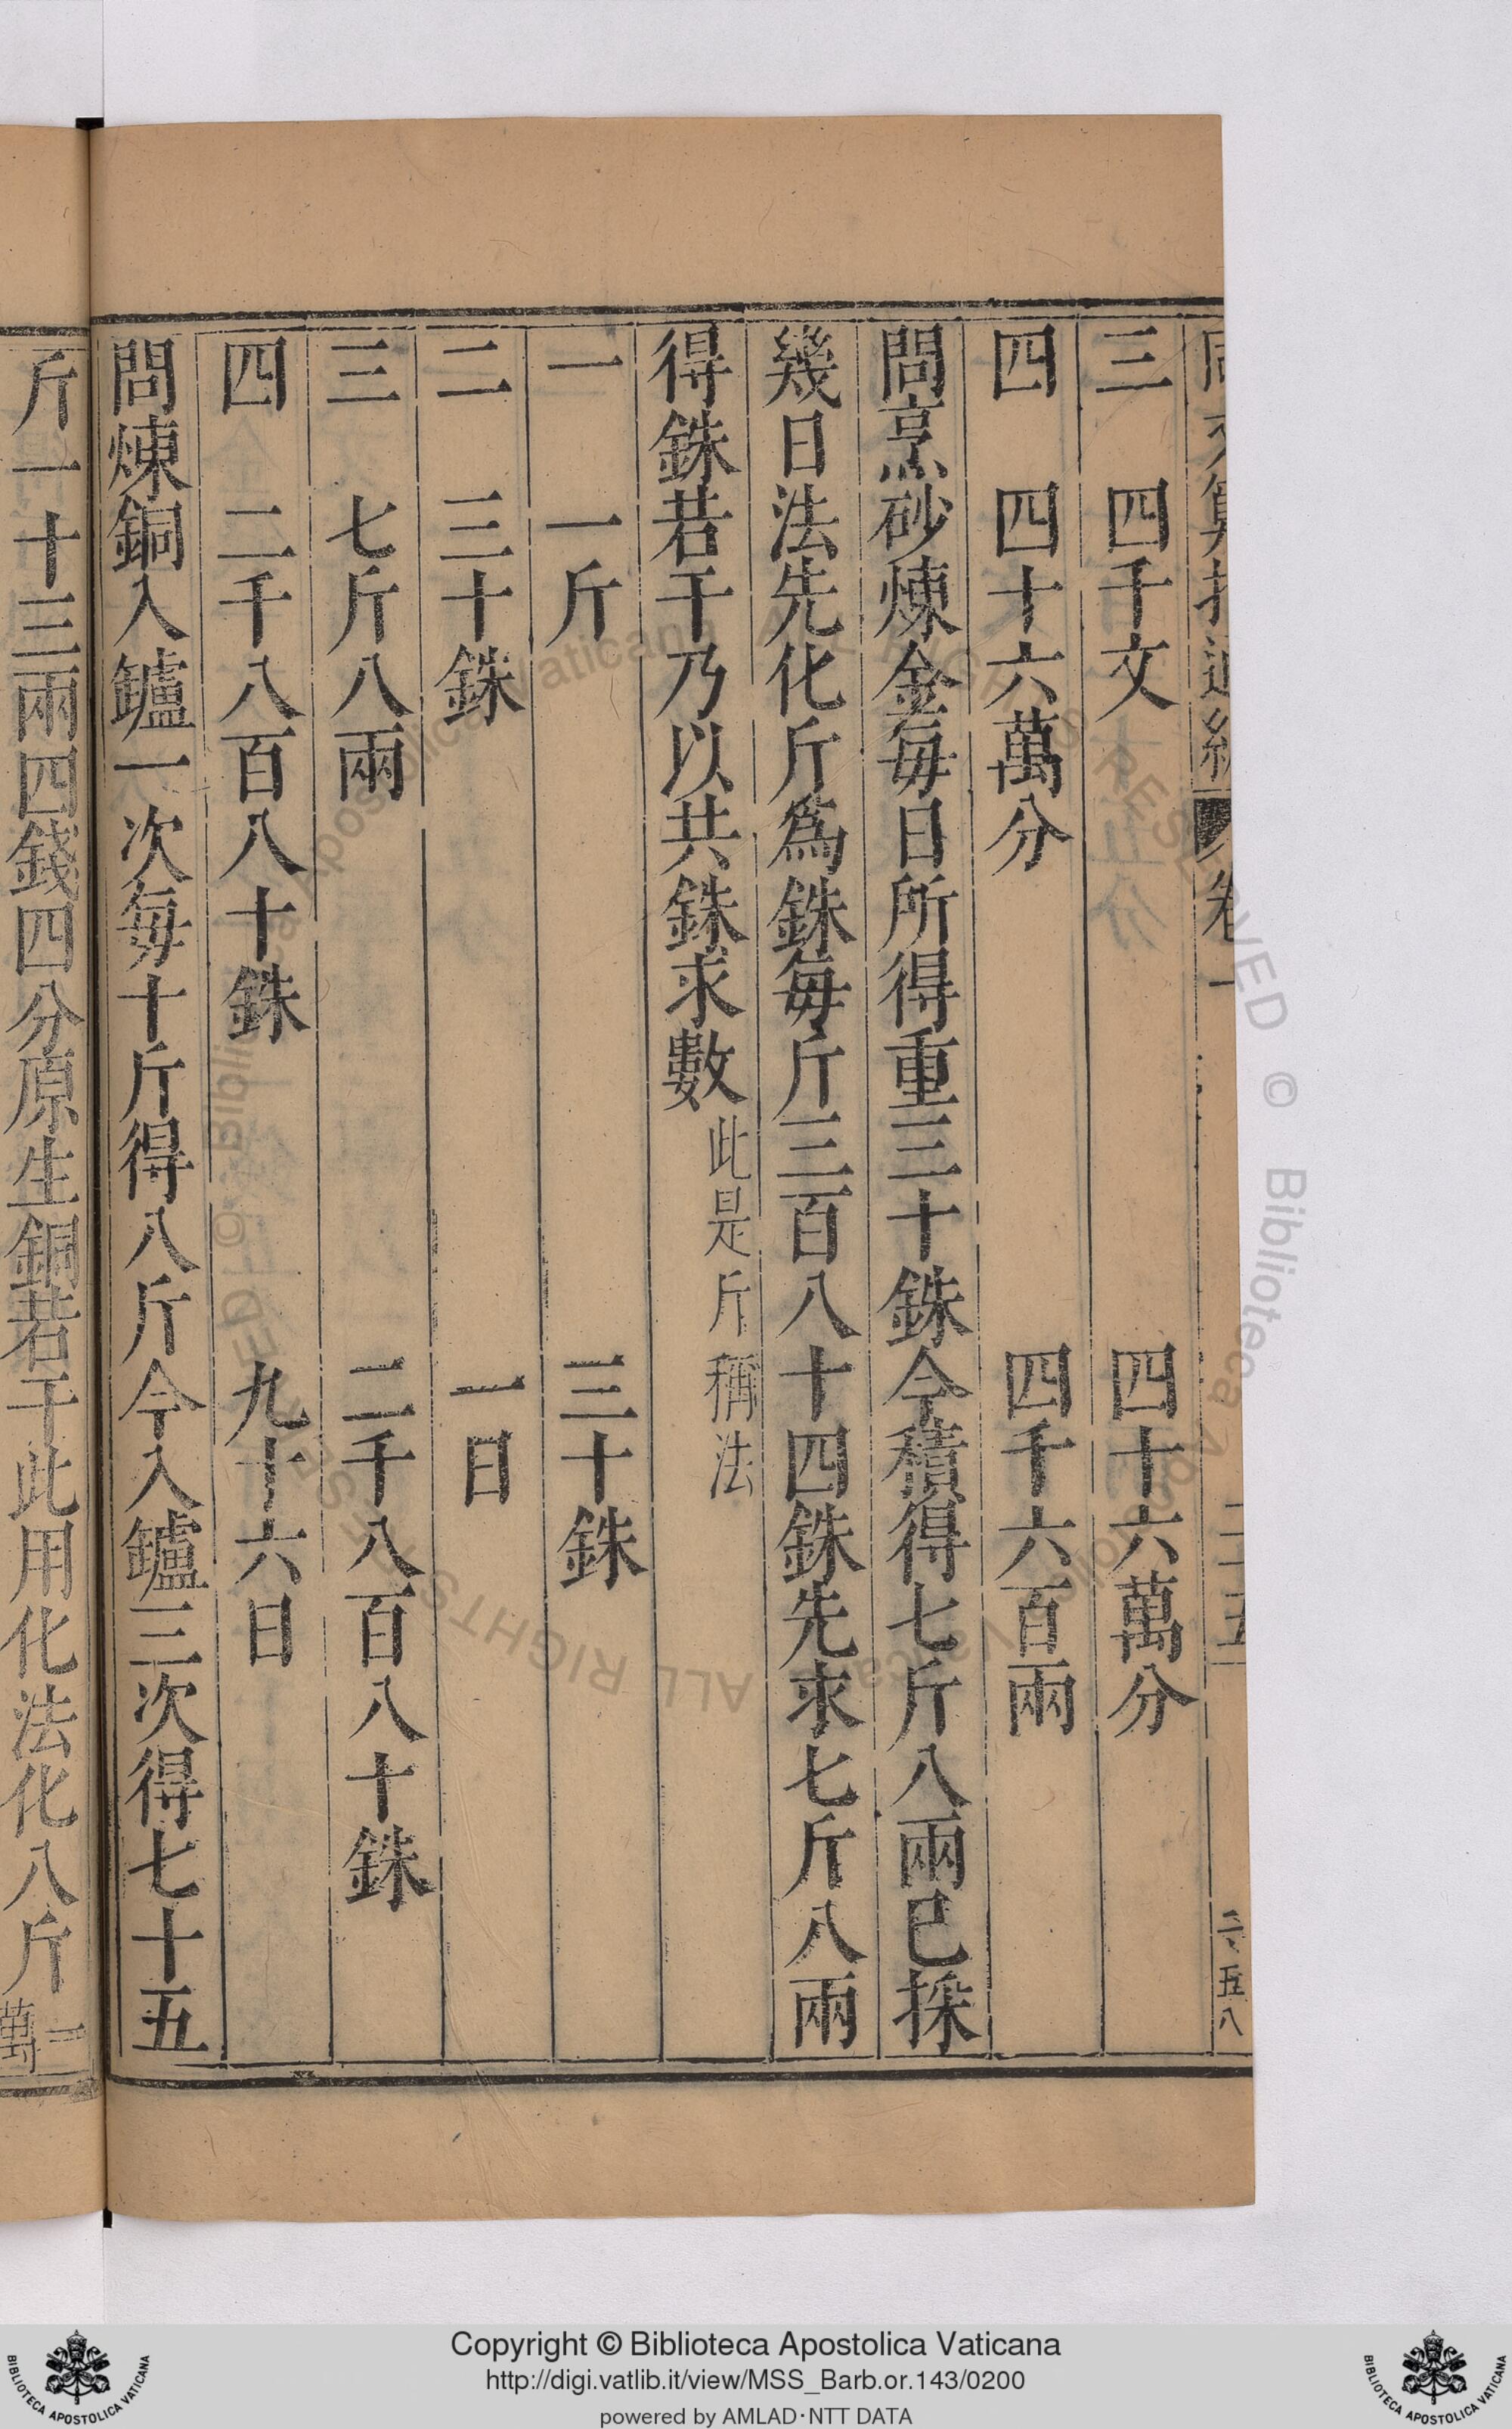 三　四千文　四十六萬分
四　四十六萬分　四千六百兩
問烹砂煉金每日所得重三十銖今積得七斤八兩已採
幾日法先化斤為銖每斤三百八十四銖先求七斤八兩
得銖若干乃以共銖求數此是斤稱法
一　一斤　三十銖
二　三十銖　一日
三　七斤八兩　二千八百八十銖
四　二千八百八十銖　九十六日
問煉銅入鑪一次每十斤得八斤今入鑪三次得七十五
斤一十三兩四錢四分原生銅若干此用化法化八斤
Copyright © Biblioteca Apostolica Vaticana
http://digi.vatlib.it/view/MSS_Barb.or.143/0200
powered by AMLAD·NTT DATA
BIBLIOTECA APOSTOLICA VATICANA
BIBLIOTECA APOSTOLICA VATICANA